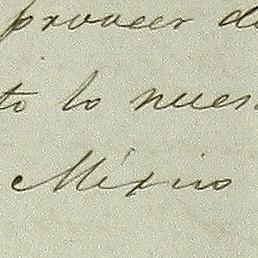 proveer de
to lo nues
México